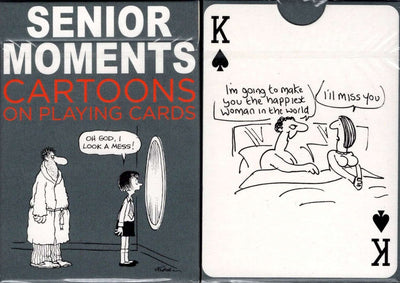 SENIOR
MOMENTS
CARTOONS
ON PLAYING CARDS
OH GOD, I
LOOK A MESS!
K
I'm going to make
you the happiest
woman in the world
I'll miss you
K